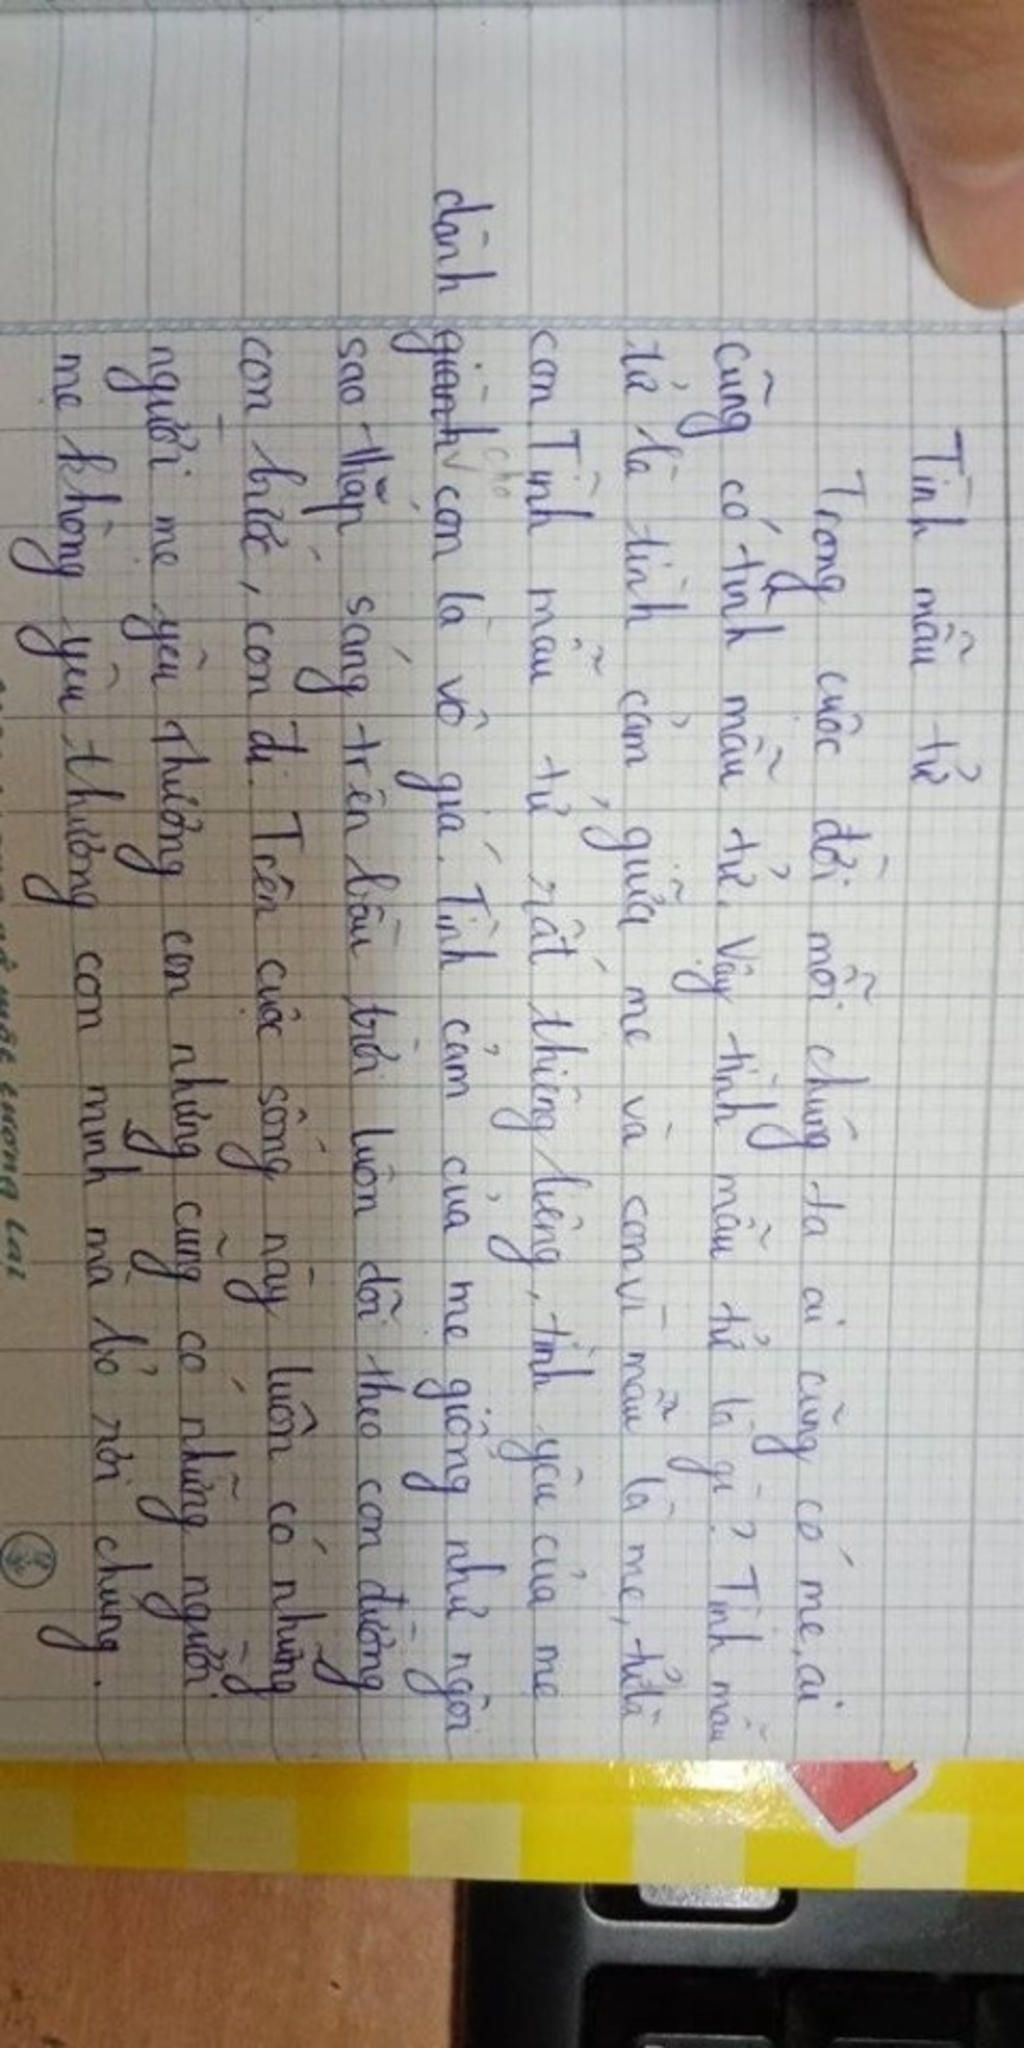 Tình mẫu tử
Trong cuộc đời mỗi chúng ta ai cũng có mẹ, ai
cũng có tình mẫu tử. Vậy tình mẫu tử là gì? Tình mẫu
tử là tình cảm giữa mẹ và con vì mẫu là mẹ, tử là
con. Tình mẫu tử rất thiêng liêng, tình yêu của mẹ
dành giành cho con là vô giá. Tình cảm của mẹ giống như ngôi
sao thắp sáng trên bầu trời luôn dõi theo con đường
con bước, con đi. Trên cuộc sống này luôn có những
người mẹ yêu thương con nhưng cũng có những người
mẹ không yêu thương con mình mà bỏ rơi chúng.